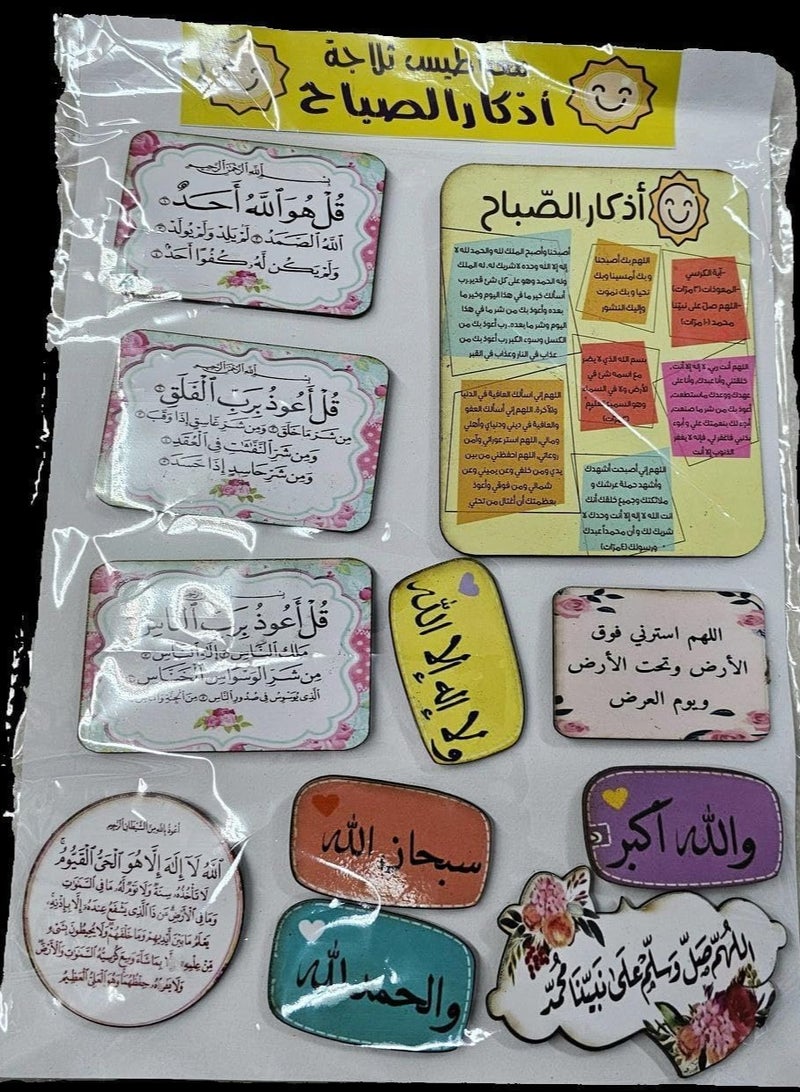 مغناطيس ثلاجة
أذكار الصباح
قُلْ هُوَ ٱللَّهُ أَحَدٌ ۝١
ٱللَّهُ ٱلصَّمَدُ ۝٢ لَمْ يَلِدْ وَلَمْ يُولَدْ ۝٣
وَلَمْ يَكُن لَّهُۥ كُفُوًا أَحَدٌۢ ۝٤
أذكار الصّباح
-آية الكرسي
-المعوذات (٣ مرّات)
-اللهم صلّ على نبيّنا
محمد (١٠ مرّات)
اللهم بك أصبحنا
وبك أمسينا وبك
نحيا وبك نموت
وإليك النشور
أصبحنا وأصبح الملك لله والحمد لله لا
إله إلا الله وحده لا شريك له، له الملك
وله الحمد وهو على كل شئ قدير رب
أسألك خير ما في هذا اليوم وخير ما
بعده وأعوذ بك من شر ما في هذا
اليوم وشر ما بعده، رب أعوذ بك من
الكسل وسوء الكبر رب أعوذ بك من
عذاب في النار وعذاب في القبر
اللهم أنت ربي، لا إله إلا أنت،
خلقتني وأنا عبدك، وأنا على
عهدك ووعدك ما استطعت،
أعوذ بك من شر ما صنعت،
أبوء لك بنعمتك علي وأبوء
بذنبي فاغفر لي، فإنه لا يغفر
الذنوب إلا أنت
بسم الله الذي لا يضر
مع اسمه شئ في
الأرض ولا في السماء
وهو السميع العليم
اللهم إني أسألك العافية في الدنيا
والآخرة، اللهم إني أسألك العفو
والعافية في ديني ودنياي وأهلي
ومالي، اللهم استر عوراتي وآمن
روعاتي، اللهم احفظني من بين
يدي ومن خلفي وعن يميني وعن
شمالي ومن فوقي وأعوذ
بعظمتك أن أغتال من تحتي
اللهم إني أصبحت أشهدك
وأشهد حملة عرشك و
ملائكتك وجميع خلقك أنك
أنت الله لا إله إلا أنت وحدك لا
شريك لك و أن محمداً عبدك
ورسولك (٤ مرّات)
قُلْ أَعُوذُ بِرَبِّ ٱلْفَلَقِ ۝١
مِن شَرِّ مَا خَلَقَ ۝٢ وَمِن شَرِّ غَاسِقٍ إِذَا وَقَبَ ۝٣
وَمِن شَرِّ ٱلنَّفَّٰثَٰتِ فِى ٱلْعُقَدِ ۝٤
وَمِن شَرِّ حَاسِدٍ إِذَا حَسَدَ ۝٥
قُلْ أَعُوذُ بِرَبِّ ٱلنَّاسِ
مَلِكِ ٱلنَّاسِ ۝٢ إِلَٰهِ ٱلنَّاسِ ۝٣
مِن شَرِّ ٱلْوَسْوَاسِ ٱلْخَنَّاسِ ۝٤
ٱلَّذِى يُوَسْوِسُ فِى صُدُورِ ٱلنَّاسِ ۝٥ مِنَ ٱلْجِنَّةِ وَٱلنَّاسِ
ولا إله إلا الله
اللهم استرني فوق
الأرض وتحت الأرض
ويوم العرض
سبحان الله
والله أكبر
والحمد لله
أعوذ بالله من الشيطان الرجيم
ٱللَّهُ لَآ إِلَٰهَ إِلَّا هُوَ ٱلْحَىُّ ٱلْقَيُّومُ ۚ
لَا تَأْخُذُهُۥ سِنَةٌ وَلَا نَوْمٌ لَّهُۥ مَا فِى ٱلسَّمَٰوَٰتِ
وَمَا فِى ٱلْأَرْضِ مَن ذَا ٱلَّذِى يَشْفَعُ عِندَهُۥٓ إِلَّا بِإِذْنِهِۦ
يَعْلَمُ مَا بَيْنَ أَيْدِيهِمْ وَمَا خَلْفَهُمْ وَلَا يُحِيطُونَ بِشَىْءٍ
مِّنْ عِلْمِهِۦٓ إِلَّا بِمَا شَآءَ وَسِعَ كُرْسِيُّهُ ٱلسَّمَٰوَٰتِ وَٱلْأَرْضَ
وَلَا يَـُٔودُهُۥ حِفْظُهُمَا وَهُوَ ٱلْعَلِىُّ ٱلْعَظِيمُ
اللَّهُمَّ صَلِّ وَسَلِّمْ عَلَىٰ نَبِيِّنَا مُحَمَّدٍ